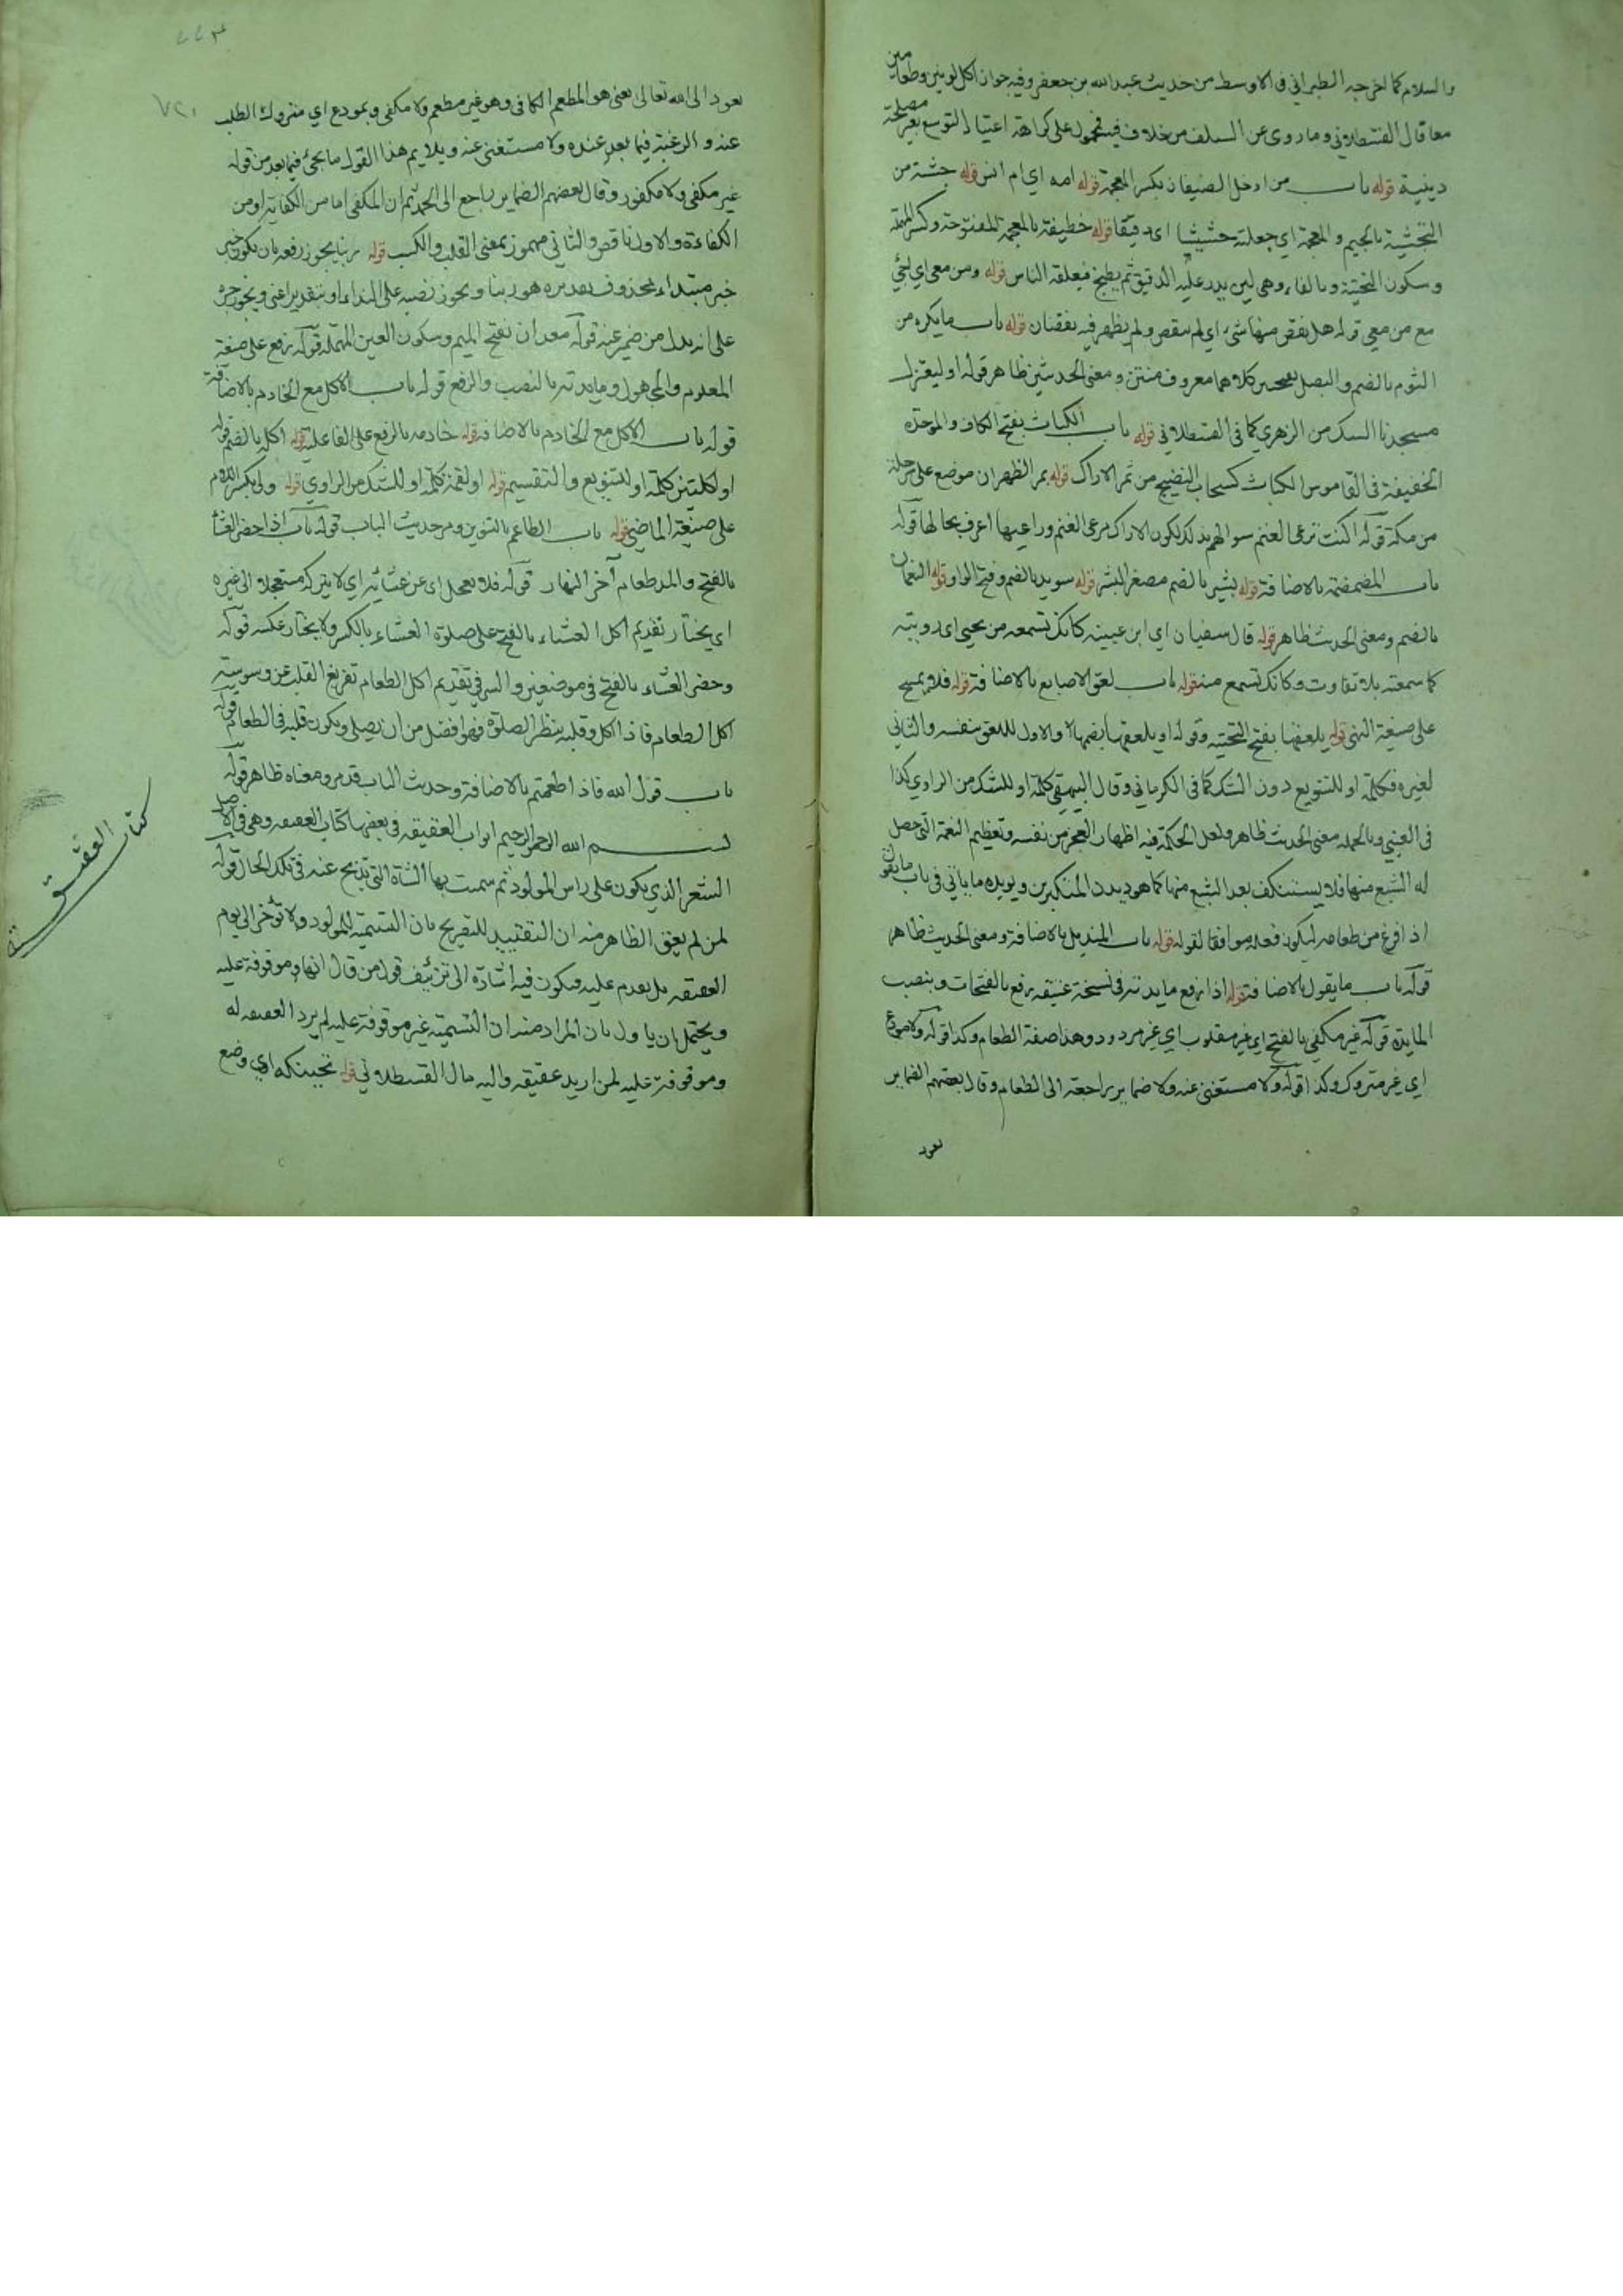 والسلام كما اخرجه الطبراني في الاوسط من حديث عبدالله بن جعفر وفيه جواز اكل لونين وطعامين
معا قال القسطلاني وما روى عن السلف من خلاف فيه فمحمول على كراهة اعتياد التوسع بغير مصلحة
دينية قوله باب من ادخل الضيفان بكسر المعجمة قوله امه اي ام انس قوله جشته من
التجشية بالجيم والمعجمة اي جعلته جشيشا اي دقيقا قوله خطيفة بالمعجمة المفتوحة وكسر المهملة
وسكون التحتية وبالفاء وهي لبن يدر عليه الدقيق ثم يطبخ فيعلقه الناس قوله ومن معي اي ايجئ
مع من معي قوله هل نقص منها شئ اي لم ينقص ولم يظهر فيه نقصان قوله باب ما يكره من
الثوم بالضم والبصل كلاهما معروف منتن ومعنى الحديثين ظاهر قوله او ليعتزل
مسجدنا الشك من الزهري كما في القسطلاني قوله باب الكباث بفتح الكاف والموحدة
الخفيفة في القاموس الكباث كسحاب النضيج من ثمر الاراك قوله بمر الظهران موضع على مرحلة
من مكة قوله اكنت ترعى الغنم سوالهم بذلك لكون الاراك مرعى الغنم وراعيها اعرف بحالها قوله
باب المضمضة بالاضافة قوله بشير بالضم مصغر البشر قوله سويد بالضم وفتح الواو قوله النعمان
بالضم ومعنى الحديث ظاهر قوله قال سفيان اي ابن عيينه كانك تسمعه من يحيى اي رويته
كما سمعته بلا تفاوت وكانك تسمع منه قوله باب لعق الاصابع بالاضافة قوله فلا يمسح
على صيغة النهي قوله يلعقها بفتح التحتية وقوله او يلعقها بضمها والاول للعق بنفسه والثاني
لغيره فكلمة او للتنويع دون الشك كما في الكرماني وقال البيهقي كلمة او للشك من الراوي كذا
في العيني وبالجمله معنى الحديث ظاهر ولعل الحكمة فيه اظهار العجز من نفسه وتعظيم النعمة التي حصل
له الشبع منها فلا يستنكف بعد الشبع منها كما هو ديدن المتكبرين ويويده ما ياتي في باب ما يقول
اذا فرغ من طعامه ليكون فعله موافقا لقوله قوله باب المنديل بالاضافة ومعنى الحديث ظاهر
قوله باب ما يقول بالاضافة قوله اذا رفع مايدته في نسخة عتيقه رفع بالفتحات وبنصب
المايدة قوله غير مكفي بالفتح اي غير مقلوب اي غير مردود وهذا صفة الطعام وكذا قوله ولا مودع
اي غير متروك وكذا قوله ولا مستغنى عنه ولا ضماير راجعة الى الطعام وقال بعضهم الضماير
يعود
يعود الى الله تعالى يعنى هو المطعم الكافي وهو غير مطعم ولا مكفى وبمودع اي متروك الطلب
عنه والرغبة فيما بعد عنده ولا مستغنى عنه ويلايم هذا القول ما يجئ فيما بعد من قوله
غير مكفى ولا مكفور وقال بعضهم الضماير راجع الى الحمد ثم ان المكفى اما من الكفاية او من
الكفاءة والاول ناقص والثاني مهموز بمعنى القلب والكسب قوله ربنا يجوز رفعه بان يكون
خبر مبتداء محذوف تقديره هو ربنا ويجوز نصبه على النداء او بتقدير اعني ويجوز جره
على انه بدل من ضمير عنه قوله معدان بفتح الميم وسكون العين المهمله قوله رفع على صيغة
المعلوم والمجهول ومايدته بالنصب والرفع قوله باب الاكل مع الخادم بالاضافة
قوله باب الاكل مع الخادم بالاضافة قوله خادمه بالرفع على الفاعلية قوله اكلة بالضم قوله
او اكلتين كلمة او للتنويع والتقسيم قوله او لقمة كلمة او للشك من الراوي قوله ولي بكسر اللام
على صيغة الماضي قوله باب الطاعم بالتنوين ومر حديث الباب قوله باب اذا حضر العشاء
بالفتح والمد طعام آخر النهار قوله فلا يعجل اي عن عشائه اي لا يتركه مستعجلا الى غيره
اي يختار تقديم اكل العشاء بالفتح على صلوة العشاء بالكسر ولا يختار عكسه قوله
وحضر العشاء بالفتح في موضعين والسر في تقديم اكل الطعام تفريغ القلب عن وسوسة
اكل الطعام فاذا اكل وقلبه ينظر الصلوة فهو افضل من ان يصلي ويكون قلبه في الطعام قوله
باب قول الله فاذا طعمتم بالاضافة وحديث الباب قد مر ومعناه ظاهر قوله
بسم الله الرحمن الرحيم ابواب العقيقه في بعضها كتاب العقيقه وهي في الاصل
الشعر الذي يكون على راس المولود ثم سميت بها الشاة التي تذبح عنه في تلك الحال قوله
لمن لم يعق الظاهر منه ان التقييد للتصريح بان التسمية للمولود ولا تؤخر الى يوم
العقيقه بل يقدم عليه فيكون فيه اشارة الى تزئيف قول من قال انها موقوفة عليه
ويحتمل ان ياول بان المراد منه ان التسمية غير موقوفة عليه لم يرد العقيقه له
وموقوفة عليه لمن اريد عقيقه واليه مال القسطلاني قوله تحنيكه اي وضع
كتاب العقيقة
٧٢٠